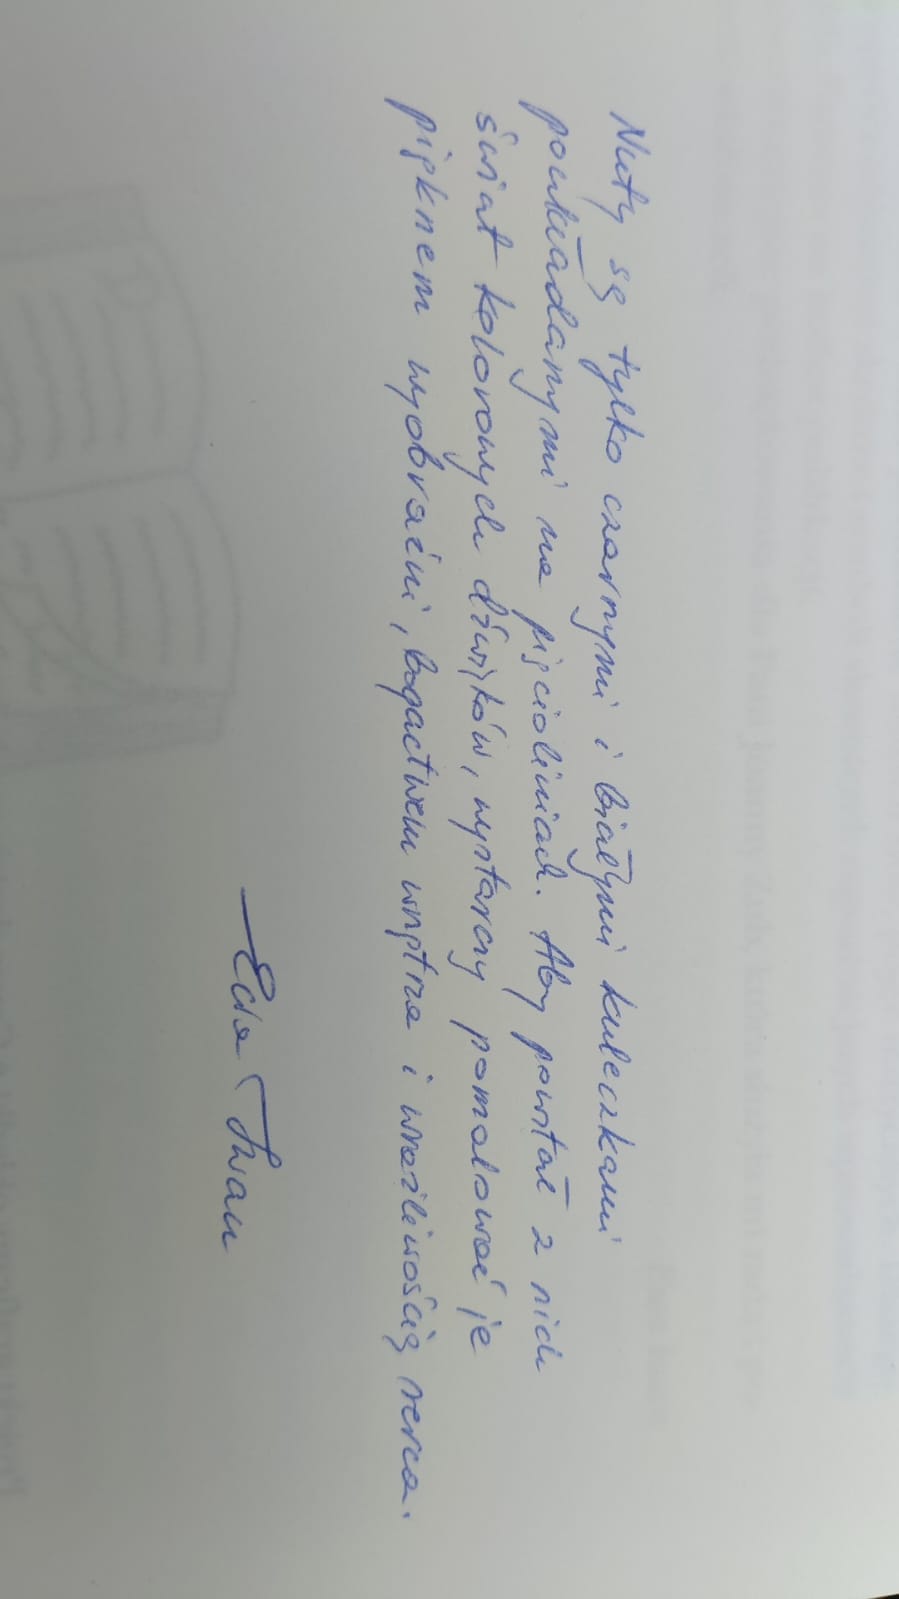 Nuty są tylko czarnymi i białymi kuleczkami
poukładanymi na pięcioliniach. Aby powstał z nich
świat kolorowych dźwięków, wystarczy pomalować je
pięknem wyobraźni, bogactwem wnętrza i wrażliwością serca.